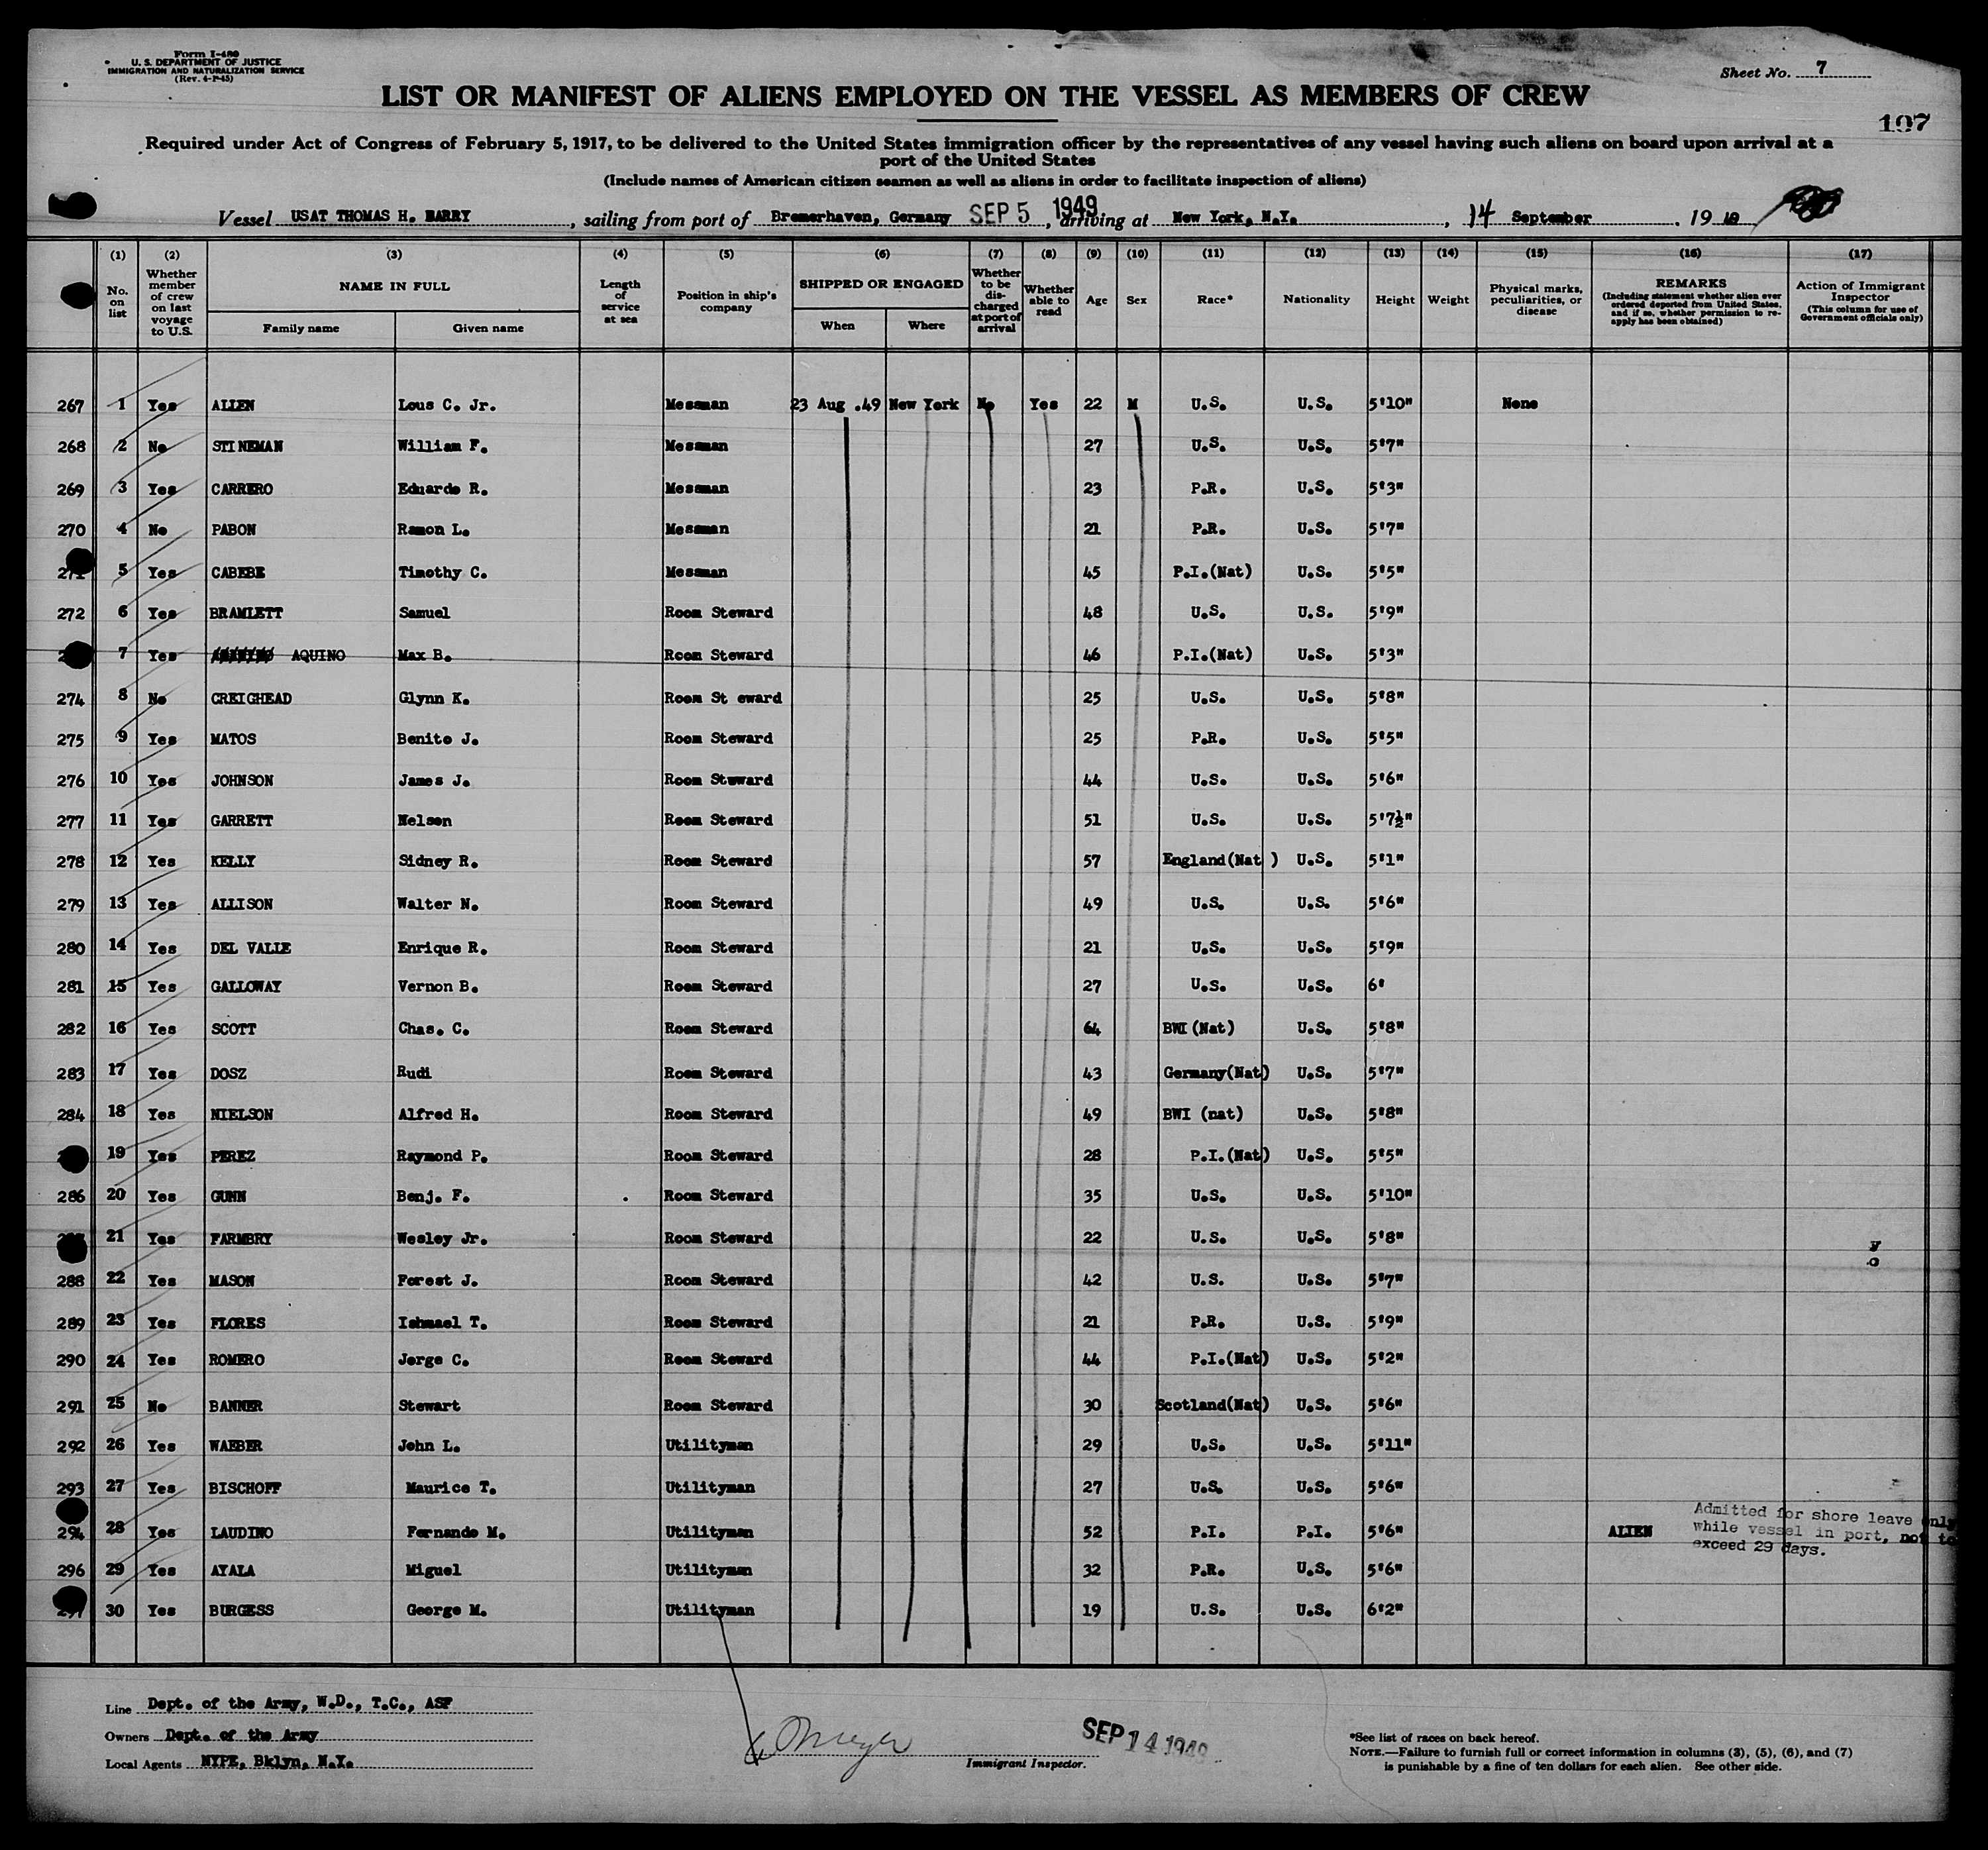 Form I-480
U. S. DEPARTMENT OF JUSTICE
IMMIGRATION AND NATURALIZATION SERVICE
(Rev. 4-1-45)
Sheet No. 7
LIST OR MANIFEST OF ALIENS EMPLOYED ON THE VESSEL AS MEMBERS OF CREW
197
Required under Act of Congress of February 5, 1917, to be delivered to the United States immigration officer by the representatives of any vessel having such aliens on board upon arrival at a
port of the United States
(Include names of American citizen seamen as well as aliens in order to facilitate inspection of aliens)
Vessel USAT THOMAS H. BARRY, sailing from port of Bremerhaven, Germany SEP 5 1949, arriving at New York, N.Y., 14 September, 19
(1) (2) (3) (4) (5) (6) (7) (8) (9) (10) (11) (12) (13) (14) (15) (16) (17)
No. on list
Whether member of crew on last voyage to U.S.
NAME IN FULL
Family name Given name
Length of service at sea
Position in ship's company
SHIPPED OR ENGAGED
When Where
Whether to be discharged at port of arrival
Whether able to read
Age
Sex
Race*
Nationality
Height
Weight
Physical marks, peculiarities, or disease
REMARKS
(Including statement whether alien ever ordered deported from United States, and if so, whether permission to reapply has been obtained)
Action of Immigrant Inspector
(This column for use of Government officials only)
267 1 Yes ALLEN Lous C. Jr. Messman 23 Aug .49 New York No Yes 22 M U.S. U.S. 5'10" None
268 2 No STINEMAN William F. Messman 27 U.S. U.S. 5'7"
269 3 Yes CARRERO Eduardo R. Messman 23 P.R. U.S. 5'3"
270 4 No PABON Ramon L. Messman 21 P.R. U.S. 5'7"
271 5 Yes CABEBE Timothy C. Messman 45 P.I.(Nat) U.S. 5'5"
272 6 Yes BRAMLETT Samuel Room Steward 48 U.S. U.S. 5'9"
7 Yes AQUINO Max B. Room Steward 46 P.I.(Nat) U.S. 5'3"
274 8 No CREIGHEAD Glynn K. Room St eward 25 U.S. U.S. 5'8"
275 9 Yes MATOS Benito J. Room Steward 25 P.R. U.S. 5'5"
276 10 Yes JOHNSON James J. Room Steward 44 U.S. U.S. 5'6"
277 11 Yes GARRETT Nelson Room Steward 51 U.S. U.S. 5'7½"
278 12 Yes KELLY Sidney R. Room Steward 57 England(Nat ) U.S. 5'1"
279 13 Yes ALLISON Walter N. Room Steward 49 U.S. U.S. 5'6"
280 14 Yes DEL VALLE Enrique R. Room Steward 21 U.S. U.S. 5'9"
281 15 Yes GALLOWAY Vernon B. Room Steward 27 U.S. U.S. 6'
282 16 Yes SCOTT Chas. C. Room Steward 64 BWI (Nat) U.S. 5'8"
283 17 Yes DOSZ Rudi Room Steward 43 Germany(Nat) U.S. 5'7"
284 18 Yes NIELSON Alfred H. Room Steward 49 BWI (nat) U.S. 5'8"
19 Yes PEREZ Raymond P. Room Steward 28 P.I.(Nat) U.S. 5'5"
286 20 Yes GUNN Benj. F. Room Steward 35 U.S. U.S. 5'10"
21 Yes FARMBRY Wesley Jr. Room Steward 22 U.S. U.S. 5'8"
288 22 Yes MASON Forest J. Room Steward 42 U.S. U.S. 5'7"
289 23 Yes FLORES Ishmael T. Room Steward 21 P.R. U.S. 5'9"
290 24 Yes ROMERO Jorge C. Room Steward 44 P.I.(Nat) U.S. 5'2"
291 25 No BANNER Stewart Room Steward 30 Scotland(Nat) U.S. 5'6"
292 26 Yes WAEBER John L. Utilityman 29 U.S. U.S. 5'11"
293 27 Yes BISCHOFF Maurice T. Utilityman 27 U.S. U.S. 5'6"
294 28 Yes LAUDINO Fernando M. Utilityman 52 P.I. P.I. 5'6" ALIEN Admitted for shore leave only while vessel in port, not to exceed 29 days.
296 29 Yes AYALA Miguel Utilityman 32 P.R. U.S. 5'6"
297 30 Yes BURGESS George M. Utilityman 19 U.S. U.S. 6'2"
Line Dept. of the Army, W.D., T.C., ASF
Owners Dept. of the Army
Local Agents NYPE, Bklyn, N.Y.
Meyer
Immigrant Inspector.
SEP 14 1949
*See list of races on back hereof.
NOTE.—Failure to furnish full or correct information in columns (3), (5), (6), and (7)
is punishable by a fine of ten dollars for each alien. See other side.